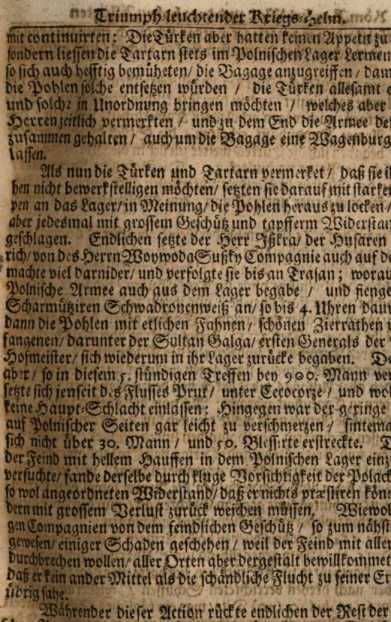 Triumph-leuchtender Kriegs-Helm.
mit continuirten: Die Türken aber hatten keinen Appetit zu
sondern liessen die Tartarn stets im Polnischen Lager Lermen
so sich auch hefftig bemüheten / die Bagage anzugreiffen / dam
die Pohlen solche entsetzen würden / die Türken allesamt e
und solche in Unordnung bringen möchten / welches aber
Herren zeitlich vermerkten / und zu dem End die Armee be
zusammen gehalten / auch um die Bagage eine Wagenburg
lassen.
Als nun die Türken und Tartarn vermerket / daß sie ih
ben nicht bewerkstelligen möchten / setzten sie darauf mit starke
pen an das Lager / in Meinung / die Pohlen heraus zu locken /
aber jedesmal mit grossem Geschütz und tapfferm Widerstan
geschlagen. Endlichen setzte der Herr Ißkra / der Husaren
rich / von des Herrn Woywoda Susky Compagnie auch auf de
machte viel darnider / und verfolgte sie bis an Trajan ; worau
Polnische Armee auch aus dem Lager begabe / und fienge
Scharmütziren Schwadronenweiß an / so bis 4. Uhren daur
dann die Pohlen mit etlichen Fahnen / schönen Zierrathen
fangenen / darunter der Sultan Galga / ersten Generals der
Hofmeister / sich wiederum in ihr Lager zurücke begaben. De
aber / so in diesem 5. stündigen Treffen bey 900. Mann ver
setzte sich jenseit des Flusses Prut / unter Cecocorze / und wol
keine Haupt-Schlacht einlassen: Hingegen war der geringe
auf Polnischer Seiten gar leicht zu verschmerzen / sintema
sich nicht über 30. Mann / und 50. Blessirte erstreckte.
der Feind mit hellem Hauffen in dem Polnischen Lager einz
versuchte / fande derselbe durch kluge Vorsichtigkeit der Polack
so wol angeordneten Widerstand / daß er nichts præstiren kön
dern mit grossem Verlust zurück weichen müssen. Wiewol
gen Compagnien von dem feindlichen Geschütz / so zum nähst
gewesen / einiger Schaden geschehen / weil der Feind mit aller
durchbrechen wollen / aller Orten aber dergestalt bewillkommet
daß er kein ander Mittel als die schändliche Flucht zu seiner Er
übrig sahe.
Währender dieser Action rückte endlichen der Rest der